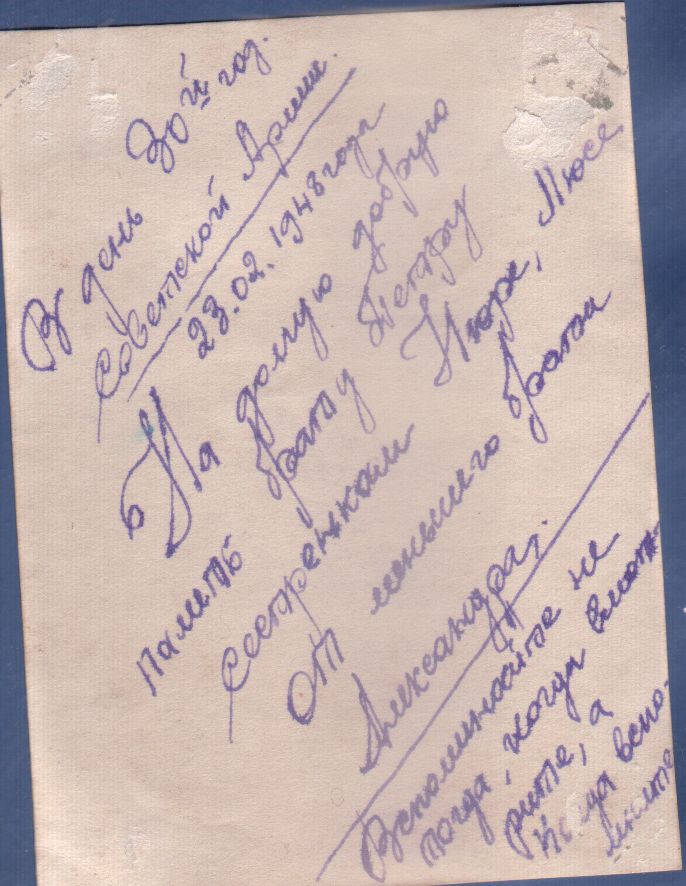 В день 30й год.
Советской Армии.
23.02.1948 года
На долгую добрую
память брату Петру
сестренкам Нюре, Люсе
От меньшего брата
Александра.
Вспоминайте не
тогда, когда смот-
рите, а
когда вспо-
мните